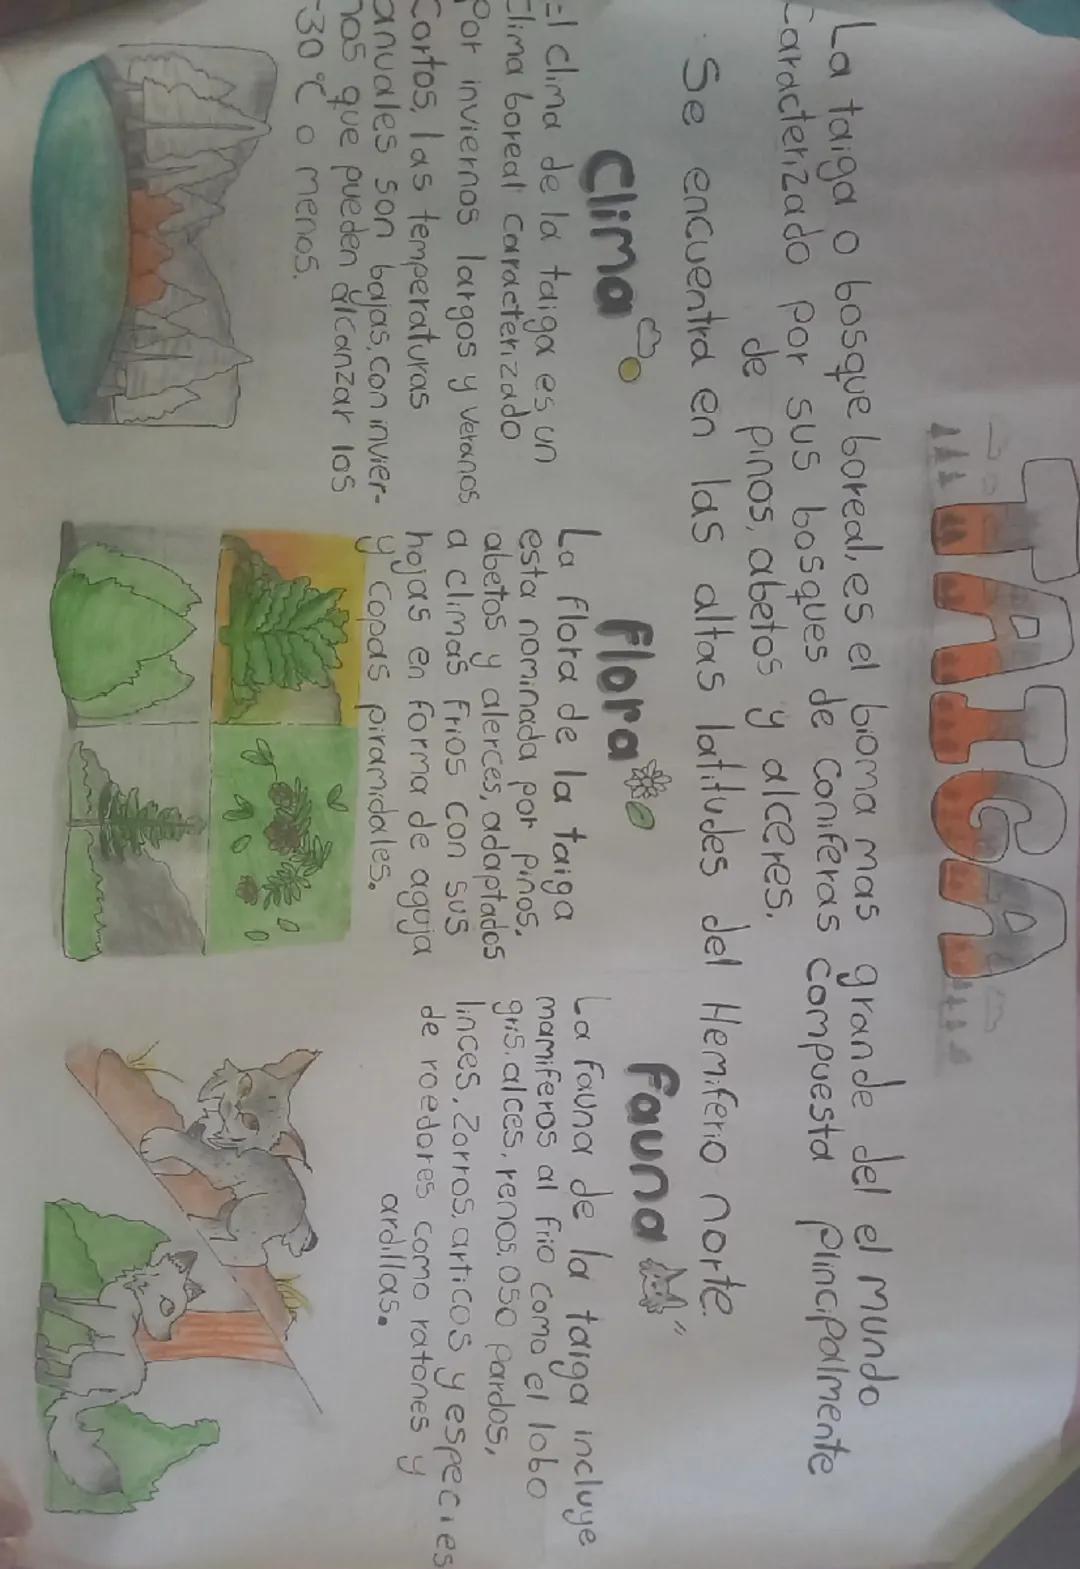 TAIGA
La taiga o bosque boreal, es el bioma mas grande del el mundo
Caracterizado por sus bosques de coniferas compuesta plincipalmente
de pinos, abetos y alceres.
Se encuentra en las altas latitudes del Hemiferio norte.
Clima
El clima de la taiga es un
clima boreal caracterizado
Por inviernos largos y veranos
Cortos, las temperaturas
anuales son bajas, con invier-
nos que pueden alcanzar los
-30 °C o menos.
Flora
La flora de la taiga
esta nominada por pinos,
abetos y alerces, adaptados
a climas frios con sus
hojas en forma de aguja
y copas piramidales.
Fauna
La fauna de la taiga incluye
mamiferos al frio como el lobo
gris, alces, renos, oso pardos,
linces, zorros, articos y especies
de roedores como ratones y
ardillas.